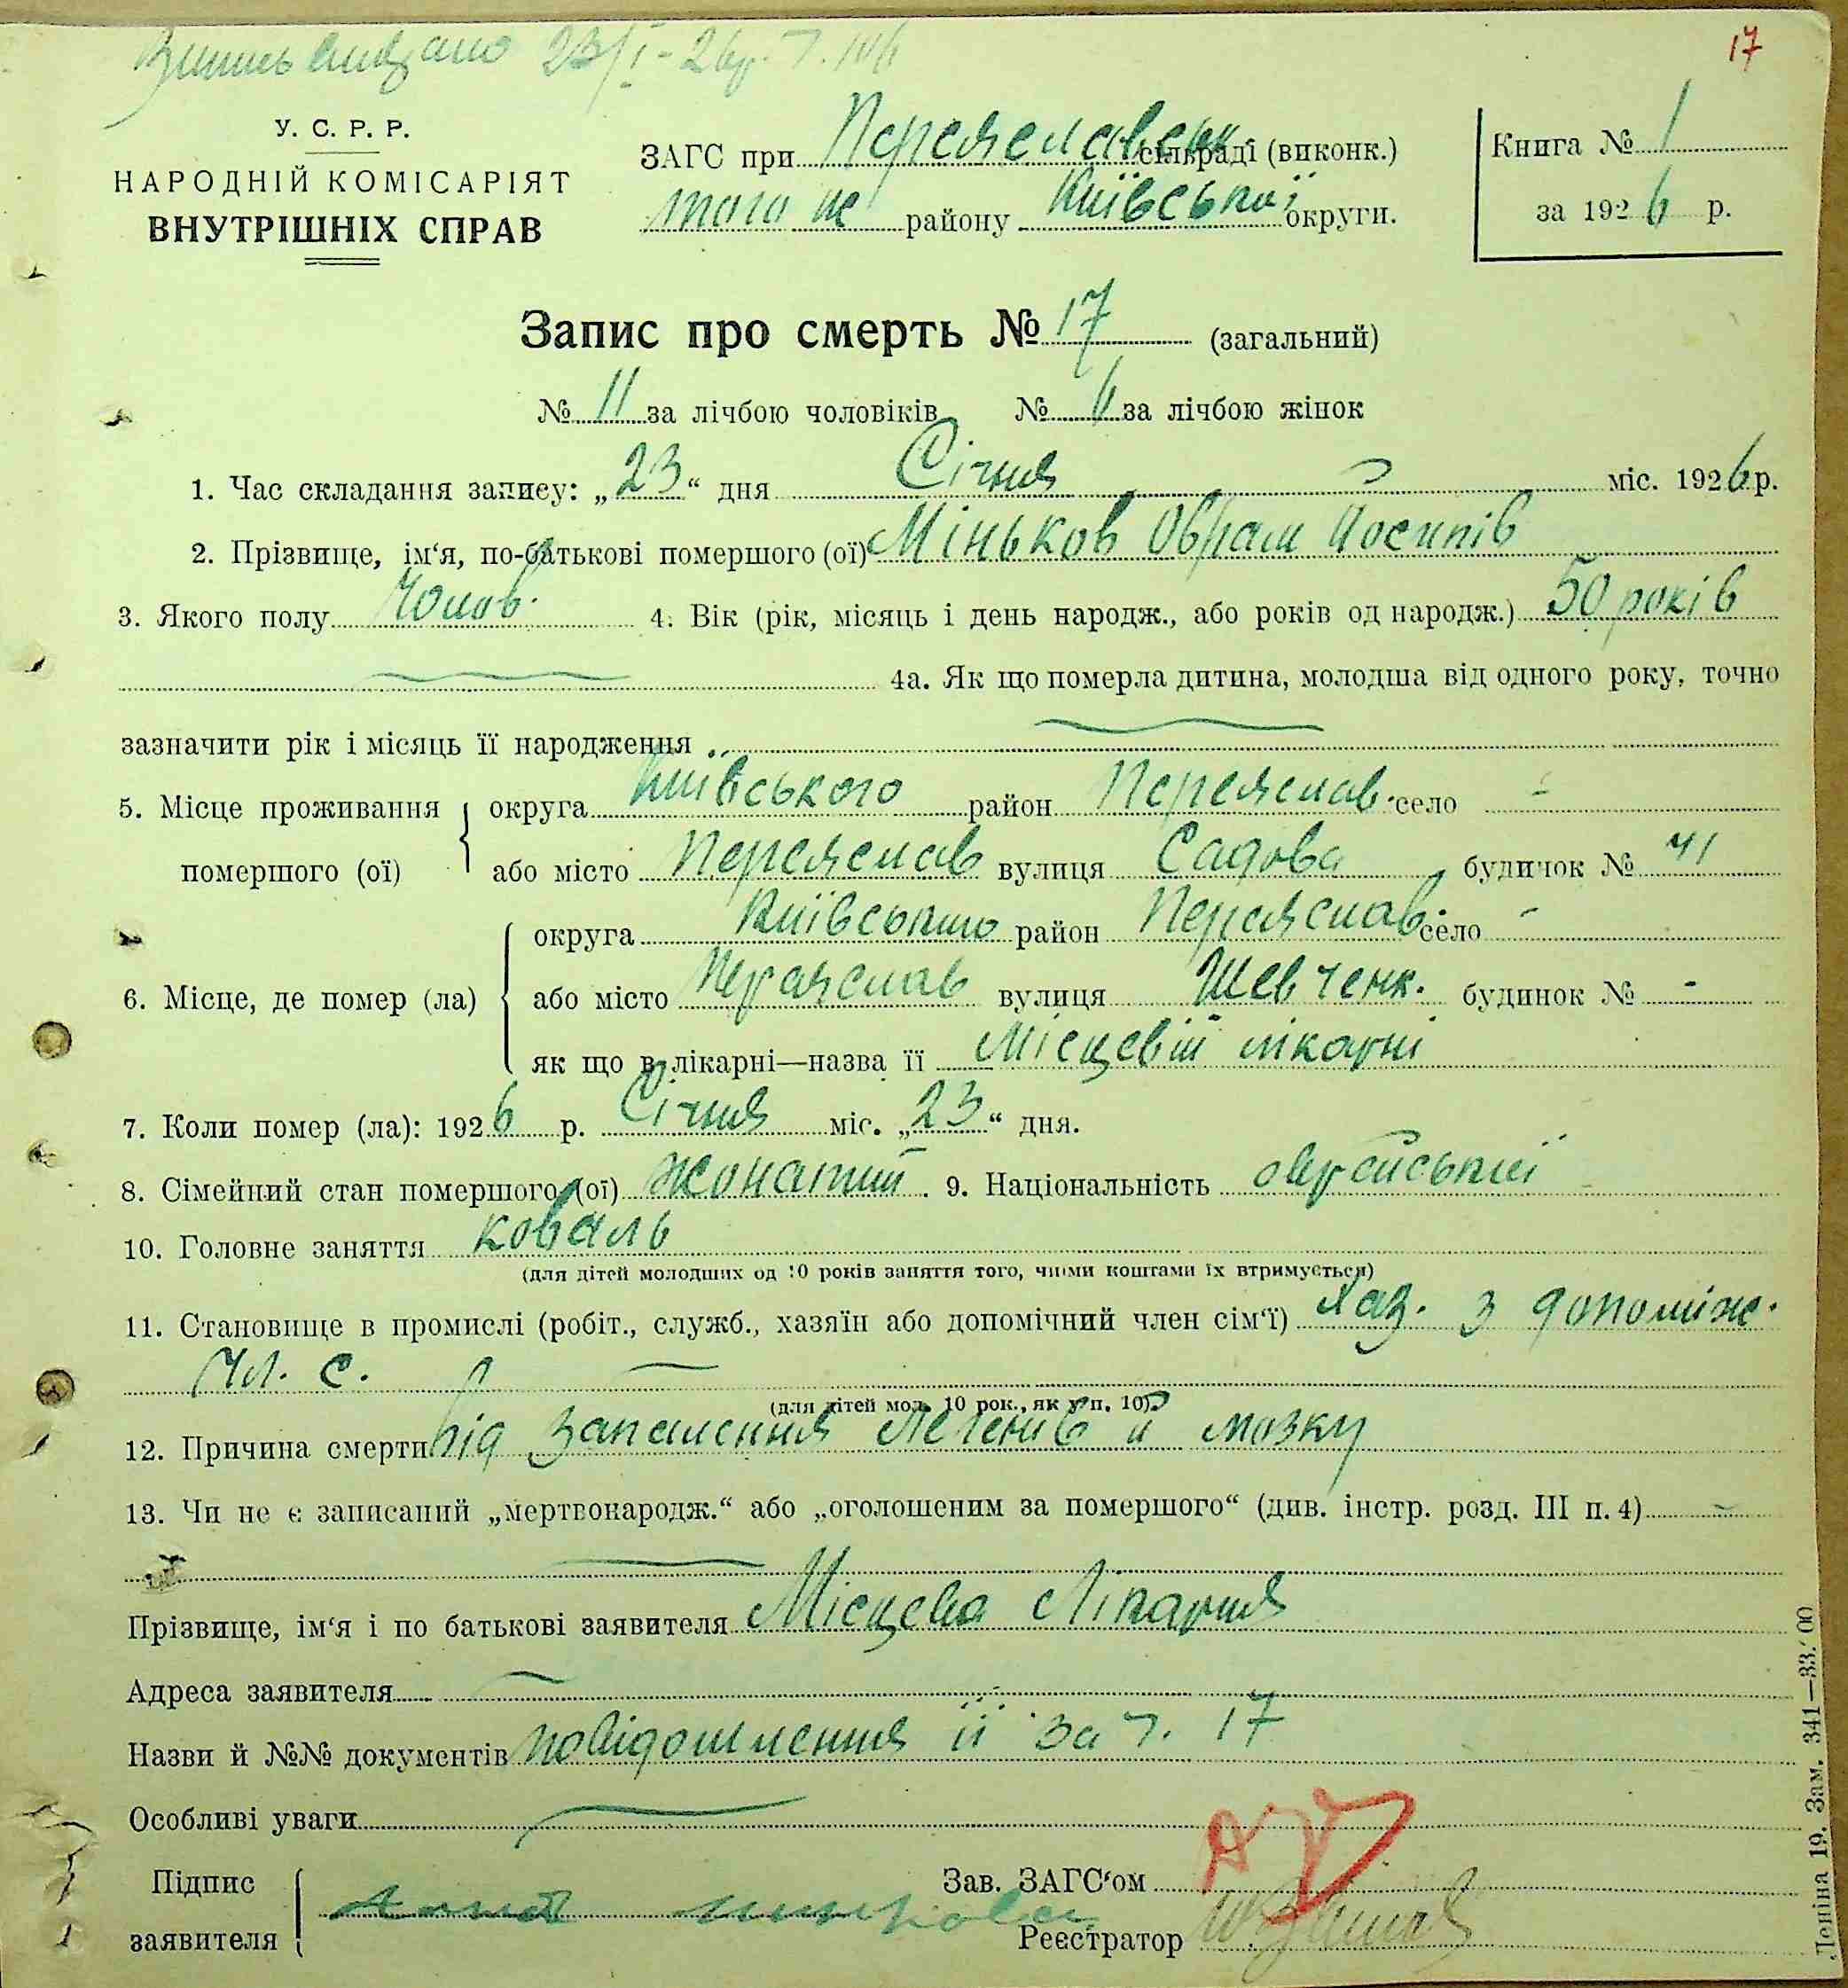 17
У. С. Р. Р.
НАРОДНІЙ КОМІСАРІЯТ
ВНУТРІШНІХ СПРАВ
ЗАГС при Переяславськ. сільраді (виконк.)
того ж району Київської округи.
Книга № 1
за 1926 р.
Запис про смерть № 17 (загальний)
№ 11 за лічбою чоловіків № 6 за лічбою жінок
1. Час складання запису: „23“ дня Січня міс. 1926 р.
2. Прізвище, ім‘я, по-батькові помершого (ої) Міньков Оврам Йосипів
3. Якого полу Чолов. 4. Вік (рік, місяць і день народж., або років од народж.) 50 років
4а. Як що померла дитина, молодша від одного року, точно
зазначити рік і місяць її народження
5. Місце проживання помершого (ої) округа Київського район Переяслав. село -
або місто Переяслав вулиця Садова будинок № 41
6. Місце, де помер (ла) округа Київського район Переяслав. село -
або місто Переяслав вулиця Шевченк. будинок № -
як що в лікарні—назва її Місцевій лікарні
7. Коли помер (ла): 1926 р. Січня міс. „23“ дня.
8. Сімейний стан помершого (ої) жонатий. 9. Національність
10. Головне заняття коваль
(для дітей молодших од 10 років заняття того, чиїми коштами їх втримується)
11. Становище в промислі (робіт., служб., хазяїн або допомічний член сім‘ї) Хаз. з допоміж.
чл. с.
(для дітей мол. 10 рок., як у п. 10).
12. Причина смерти Від запалення легенів й мозку
13. Чи не є записаний „мертвонародж.“ або „оголошеним за помершого“ (див. інстр. розд. III п. 4)
Прізвище, ім‘я і по батькові заявителя Місцева Лікарня
Адреса заявителя
Назви й №№ документів повідомлення її за ч. 17
Особливі уваги
Підпис заявителя
Зав. ЗАГС‘ом
Реєстратор
Леніна 19. Зам. 341—33.